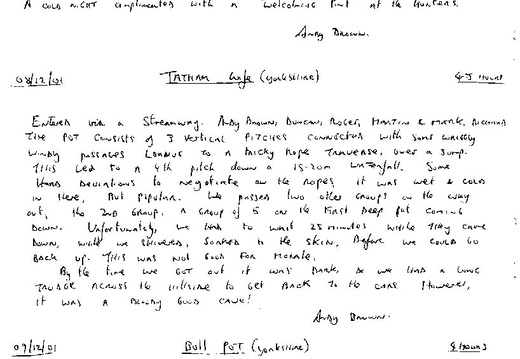 A cold night complimented with a welcoming pint at the Hunters.
Andy Brown.
08/12/01 TATHAM Wife (yorkshire) 4.5 Hours
Entered via a Streamway. Andy Brown, Duncan, Roger, Martin & Mark,
The pot consists of 3 vertical pitches connected with some wriggly
windy passages leading to a tricky rope traverse, over a sump.
This led to a 4th pitch down a 15-20m waterfall. Some
hard deviations to negotiate on the ropes it was wet & cold
in there, but popular. We passed two other groups on the way
out, the 2nd group, a group of 5 on the first deep pot coming
down. Unfortunately, we had to wait 25 minutes while they came
down, while we shivered, soaked to the skin, before we could go
back up. This was not good for morale.
By the time we got out it was dark, & we had a long
trudge across the hillside to get back to the cars. However,
it was a bloody good cave!
Andy Brown.
09/12/01 Bull Pot (yorkshire) Hours